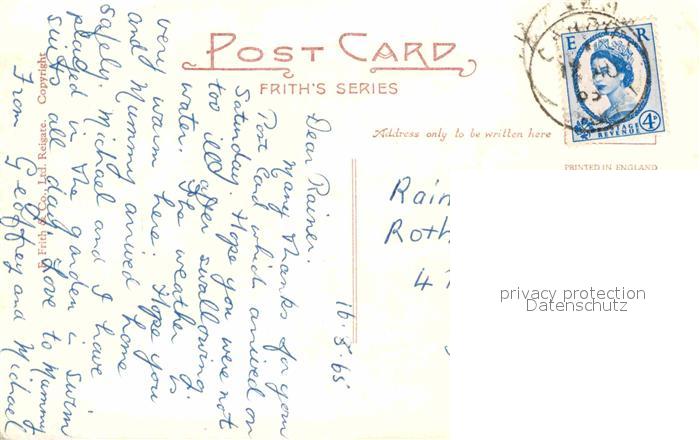 POST CARD
FRITH'S SERIES
Address only to be written here
PRINTED IN ENGLAND
E R
POSTAGE
REVENUE
4D
F. Frith & Co., Ltd. Reigate. Copyright
16.5.65
Dear Rainer.
Many thanks for your
Post Card which arrived on
Saturday. Hope you were not
too ill after swallowing
water. The weather is
very warm here. Hope you
and Mummy arrived home
safely. Michael and I have
played in the garden in swim
suits all day. Love to Mummy
From Geoffrey and Michael
Rain
Roth
4
privacy protection
Datenschutz